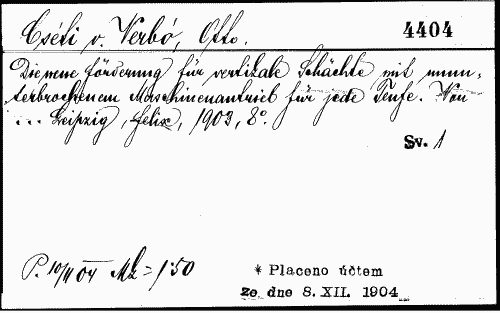 Cséti v. Verbó, Otto. 4404
Die neue Förderung für vertikale Schächte mit unun-
terbrochenem Maschinenantrieb für jede Teufe. Von
... Leipzig, Felix, 1903, 8°.
Sv. 1
P. 10/II 04 Mk = 1·50
* Placeno účtem
ze dne 8. XII. 1904